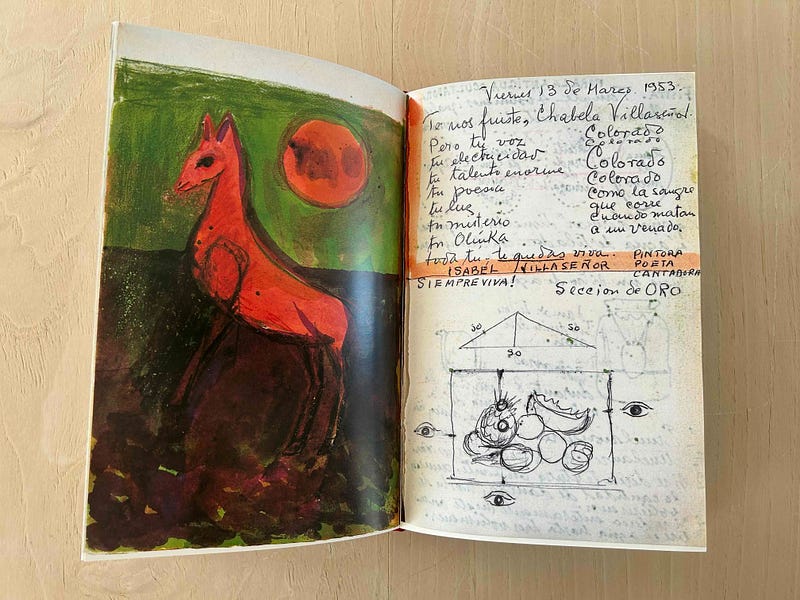 Viernes 13 de Marzo. 1953.
Te nos fuiste, Chabela Villaseñor.
Pero tu voz
tu electricidad
tu talento enorme
tu poesia
tu luz
tu misterio
tu Olinka
toda tu - te quedas viva.
Colorado
Colorado
Colorado
Colorado
como la sangre
que corre
cuando matan
a un venado.
ISABEL VILLASEÑOR
PINTORA
POETA
CANTADORA
SIEMPREVIVA!
Seccion de ORO